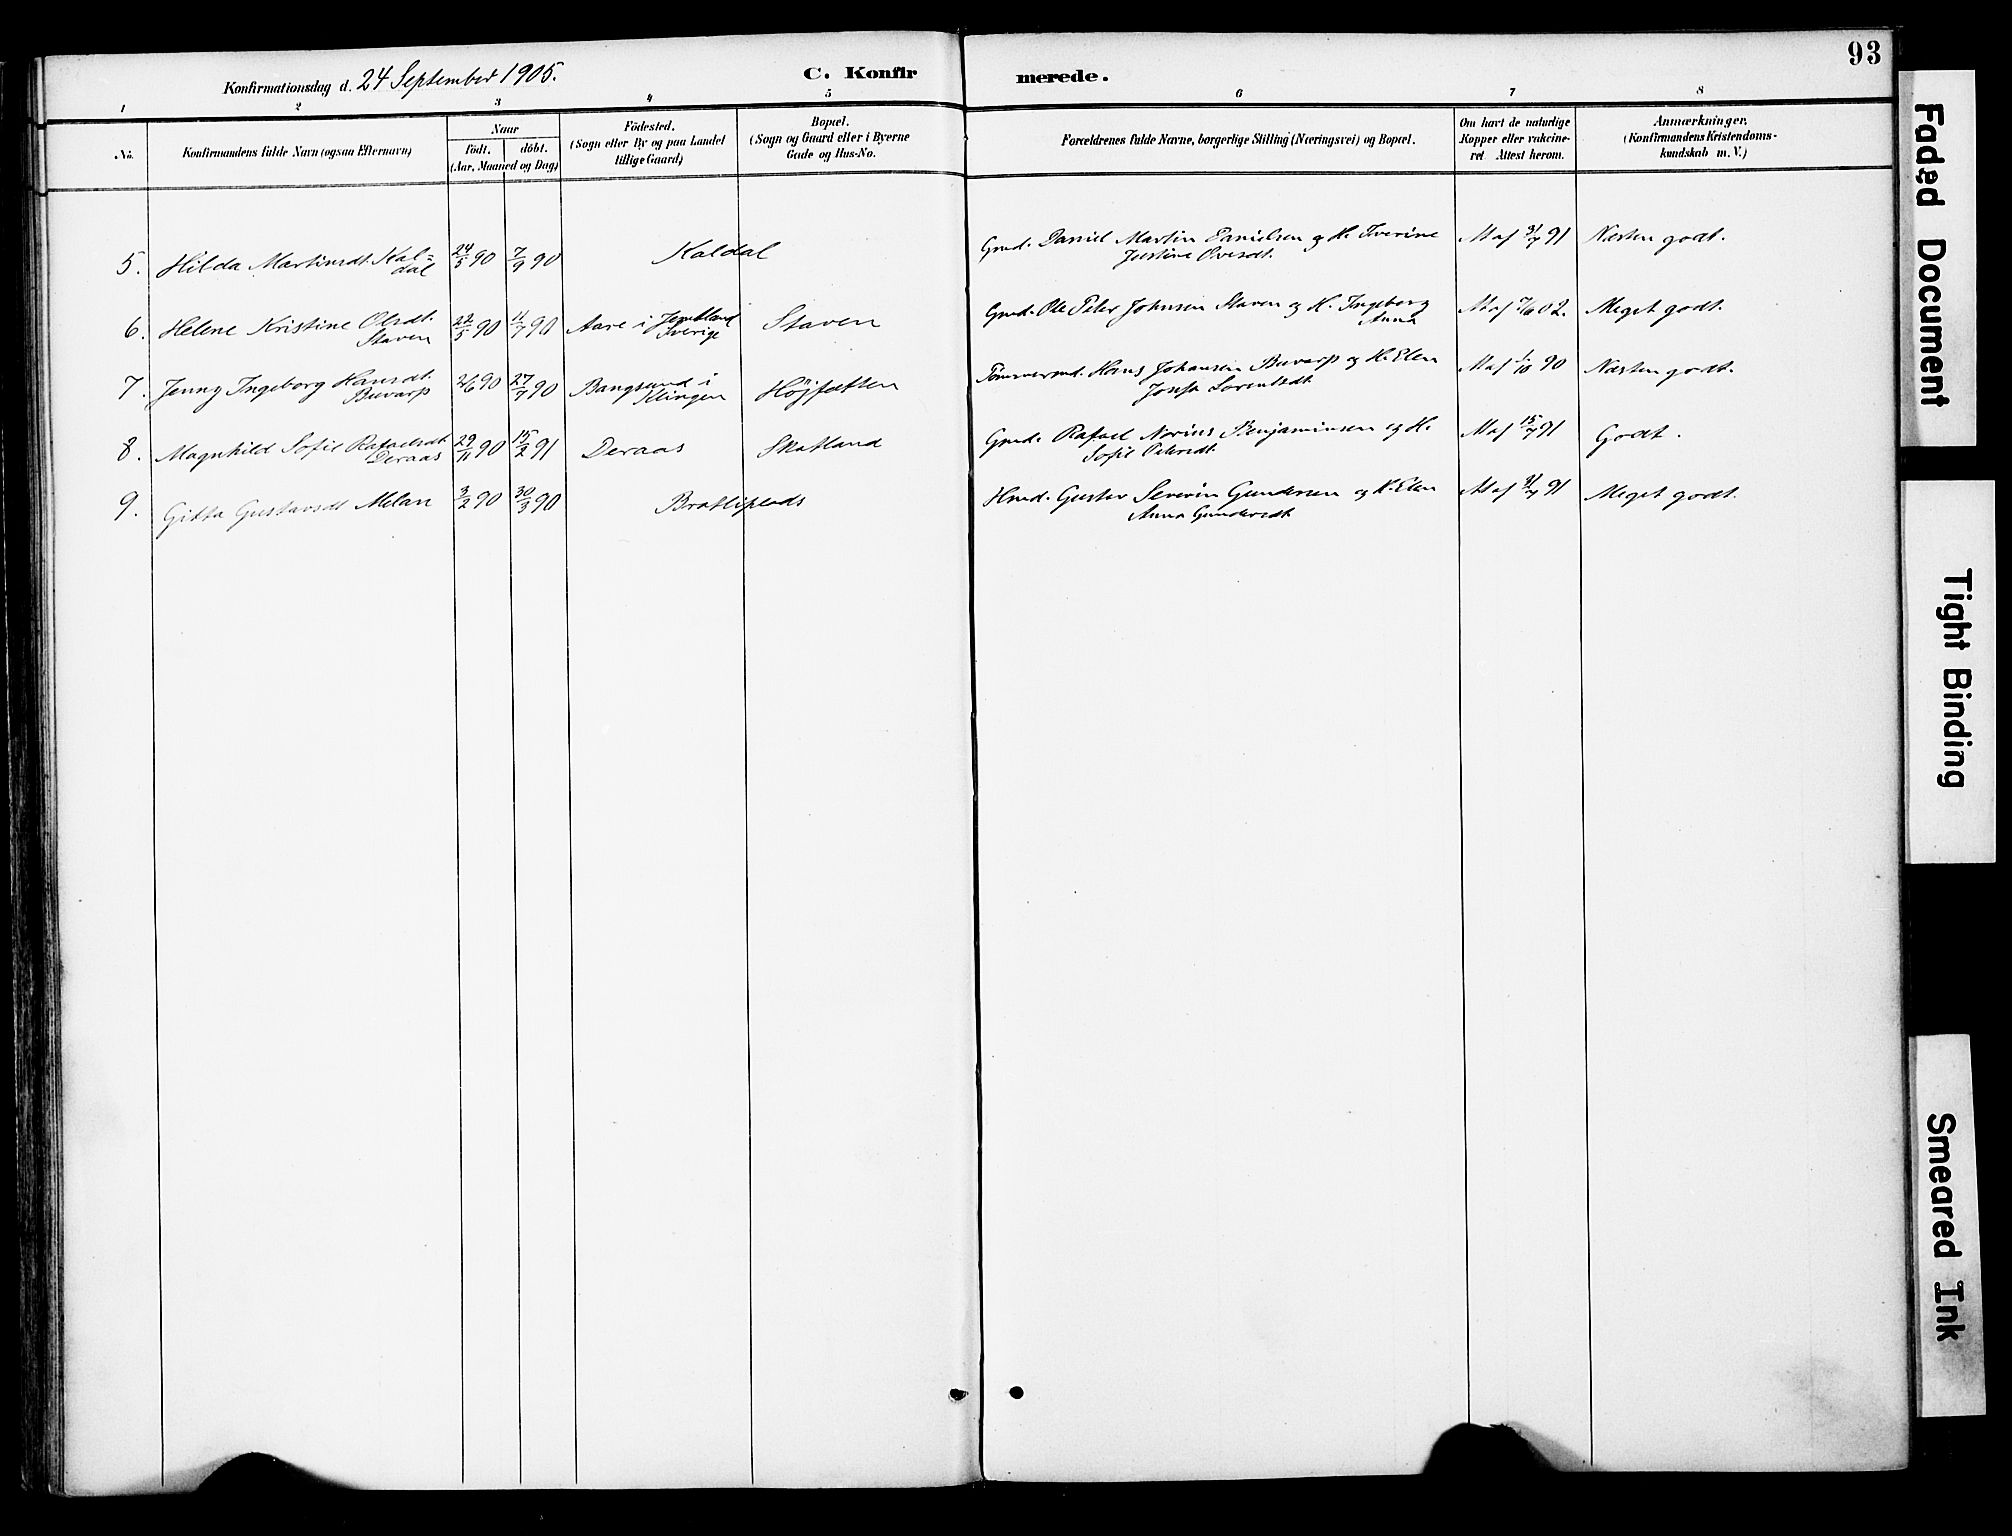 93
Konfirmationsdag d. 24 September 1905.
C. Konfir
merede.
1 2 3 4 5 6 7 8
No.
Konfirmandens fulde Navn (ogsaa Efternavn)
Naar
født. døbt.
(Aar, Maaned og Dag)
Fødested.
(Sogn eller By og paa Landet
tillige Gaard)
Bopæl.
(Sogn og Gaard eller i Byerne
Gade og Hus-No.
Forældrenes fulde Navne, borgerlige Stilling (Næringsvei) og Bopæl.
Om havt de naturlige
Kopper eller vakcine-
ret. Attest herom.
Anmærkninger.
(Konfirmandens Kristendoms-
kundskab m. V.)
5. Hilda Martinsdt. Kal= 24/5 90 7/9 90 Kaldal Gmd. Daniel Martin Danielsen og H. Iverine M af 91 Næsten godt.
dal Justine Ovesdt.
6. Helene Kristine Olsdt. 22/5 90 11/7 90 Aare i Jemtland Staven Gmd. Ole Peter Johnsen Staven og H. Ingeborg M af 02. Meget godt.
Staven Sverige Anna
7. Jenny Ingeborg Hansdt. 2/6 90 27/7 90 Bangsund i Højfætten Tømmermd. Hans Johansen Buvarp og H. Elen M af 1/10 90 Næsten godt.
Buvarp Klingen Josefa Lorentsdt
8. Magnhild Sofie Rafaelsdt 29/11 90 15/2 91 Deraas Skatland Gmd. Rafael Norius Benjaminsen og H. M af 15/7 91 Godt.
Deraas Sofie
9. Gitta Gustavsdt Melan 3/2 90 30/3 90 Bratliplads Hmd. Gustav Severin Gundersen og H. Elen M af 91 Meget godt.
Anna Gundersdt
Faded Document
Tight Binding
Smeared Ink